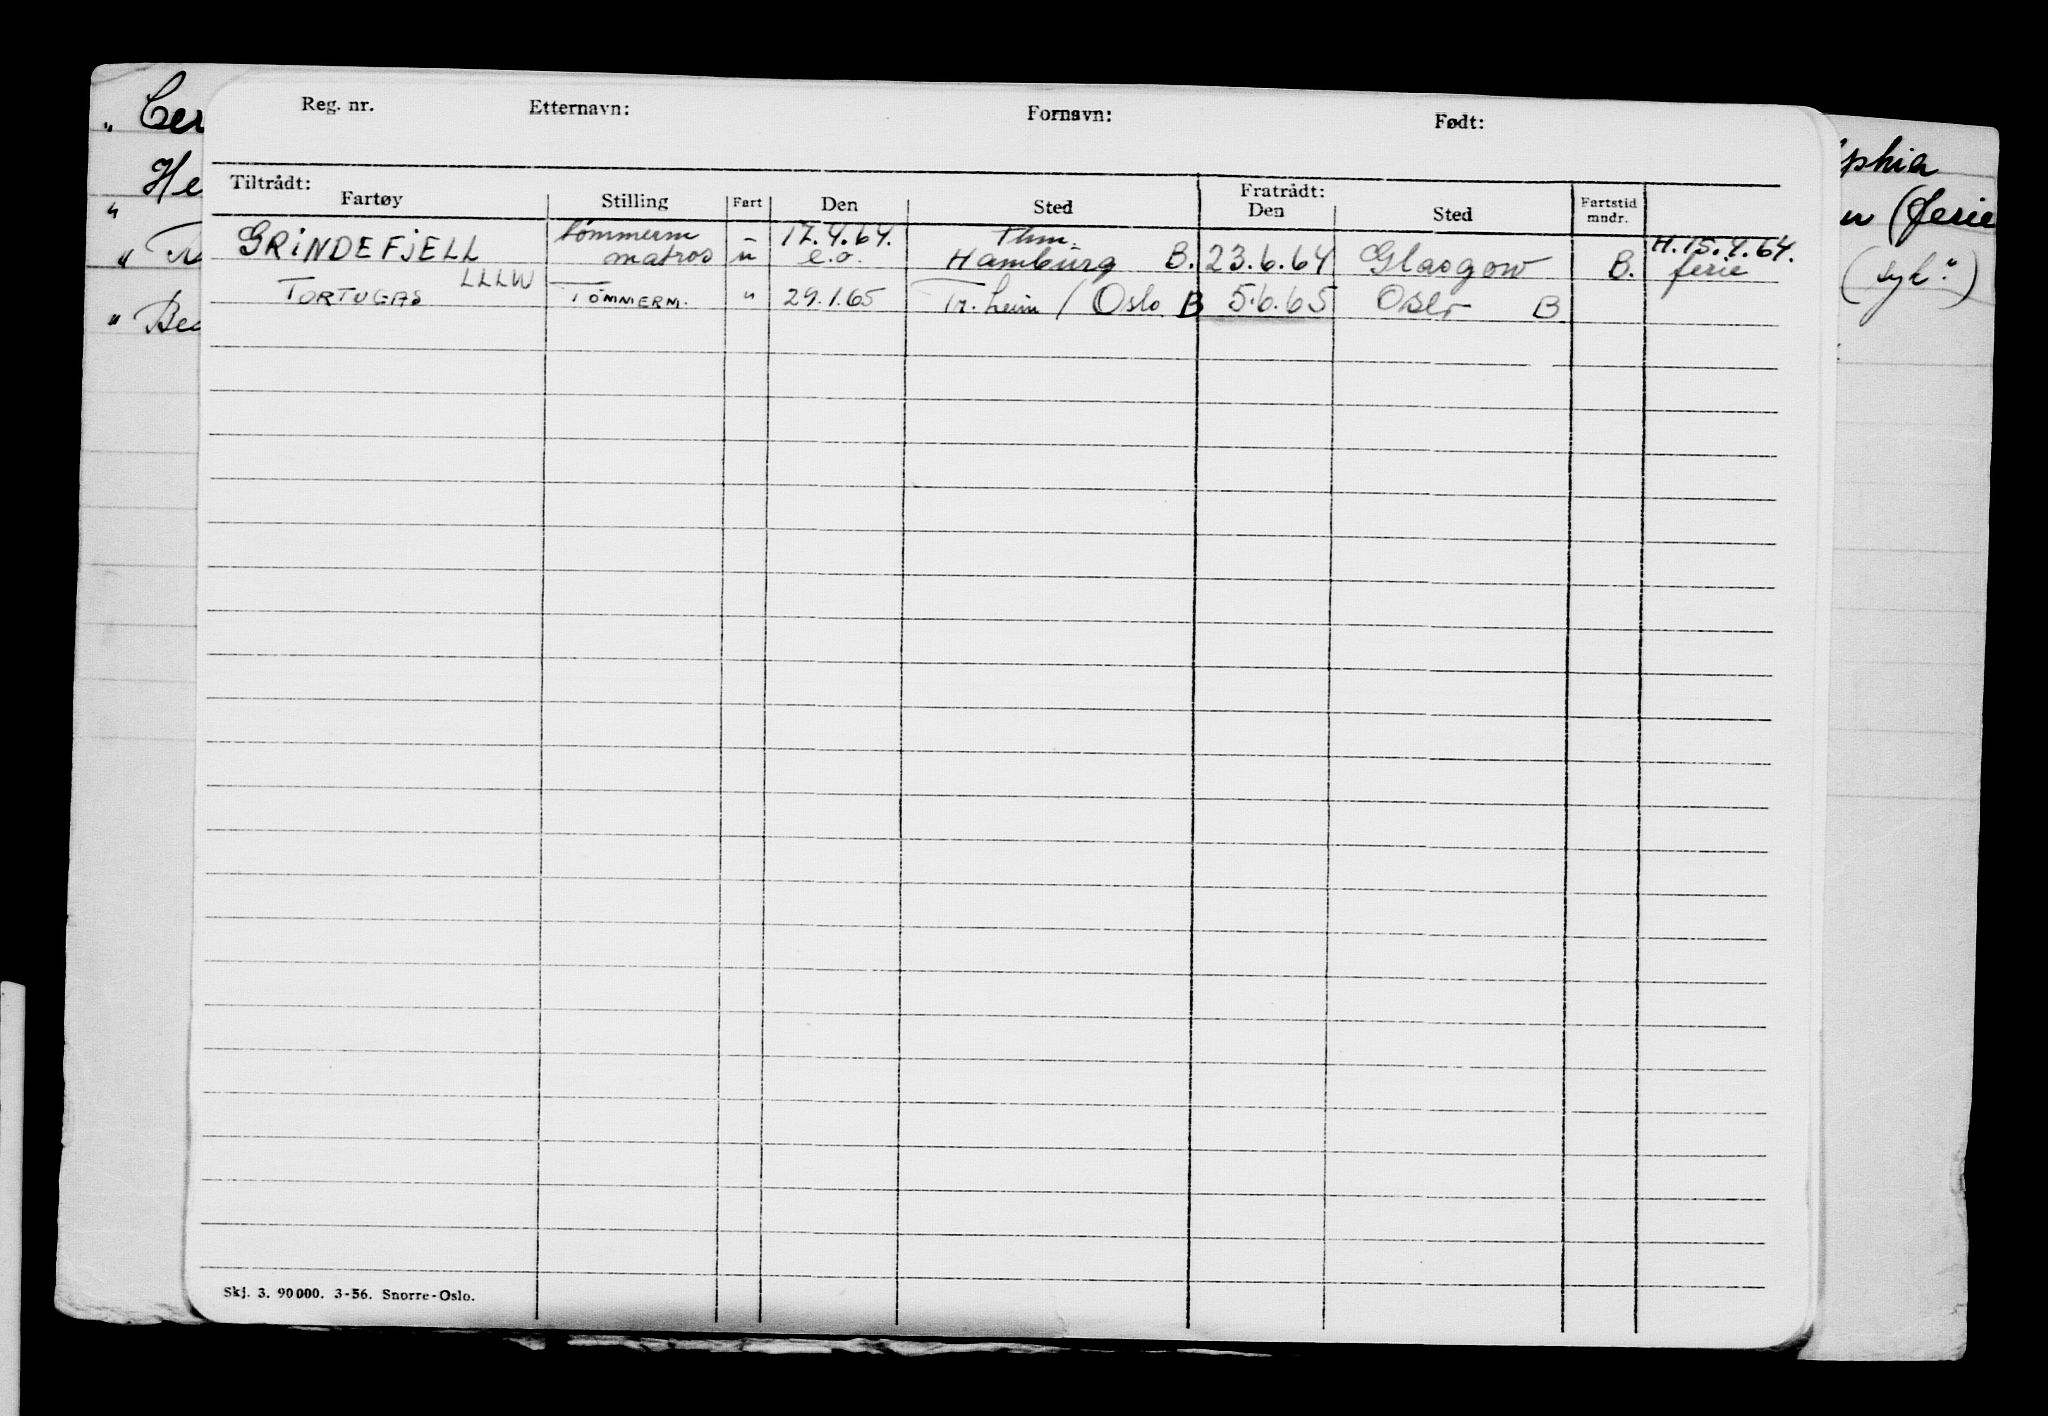 Reg. nr. Etternavn: Fornavn: Født:
Tiltrådt: Fratrådt:
Fartøy Stilling Fart Den Sted Den Sted Fartstid mndr.
GRINDEFJELL tømmerm – 17.4.64. Thm. H.15.4.64.
matros u e.o. Hamburg B. 23.6.64 Glasgow B. ferie
LLLW
TORTUGAS TØMMERM. " 29.1.65 Tr.heim / Oslo B 5.6.65 Oslo B
Skj. 3. 90000. 3-56. Snorre-Oslo.
" Cer
" He
"
" Bec
phia
(ferie
(syk.)